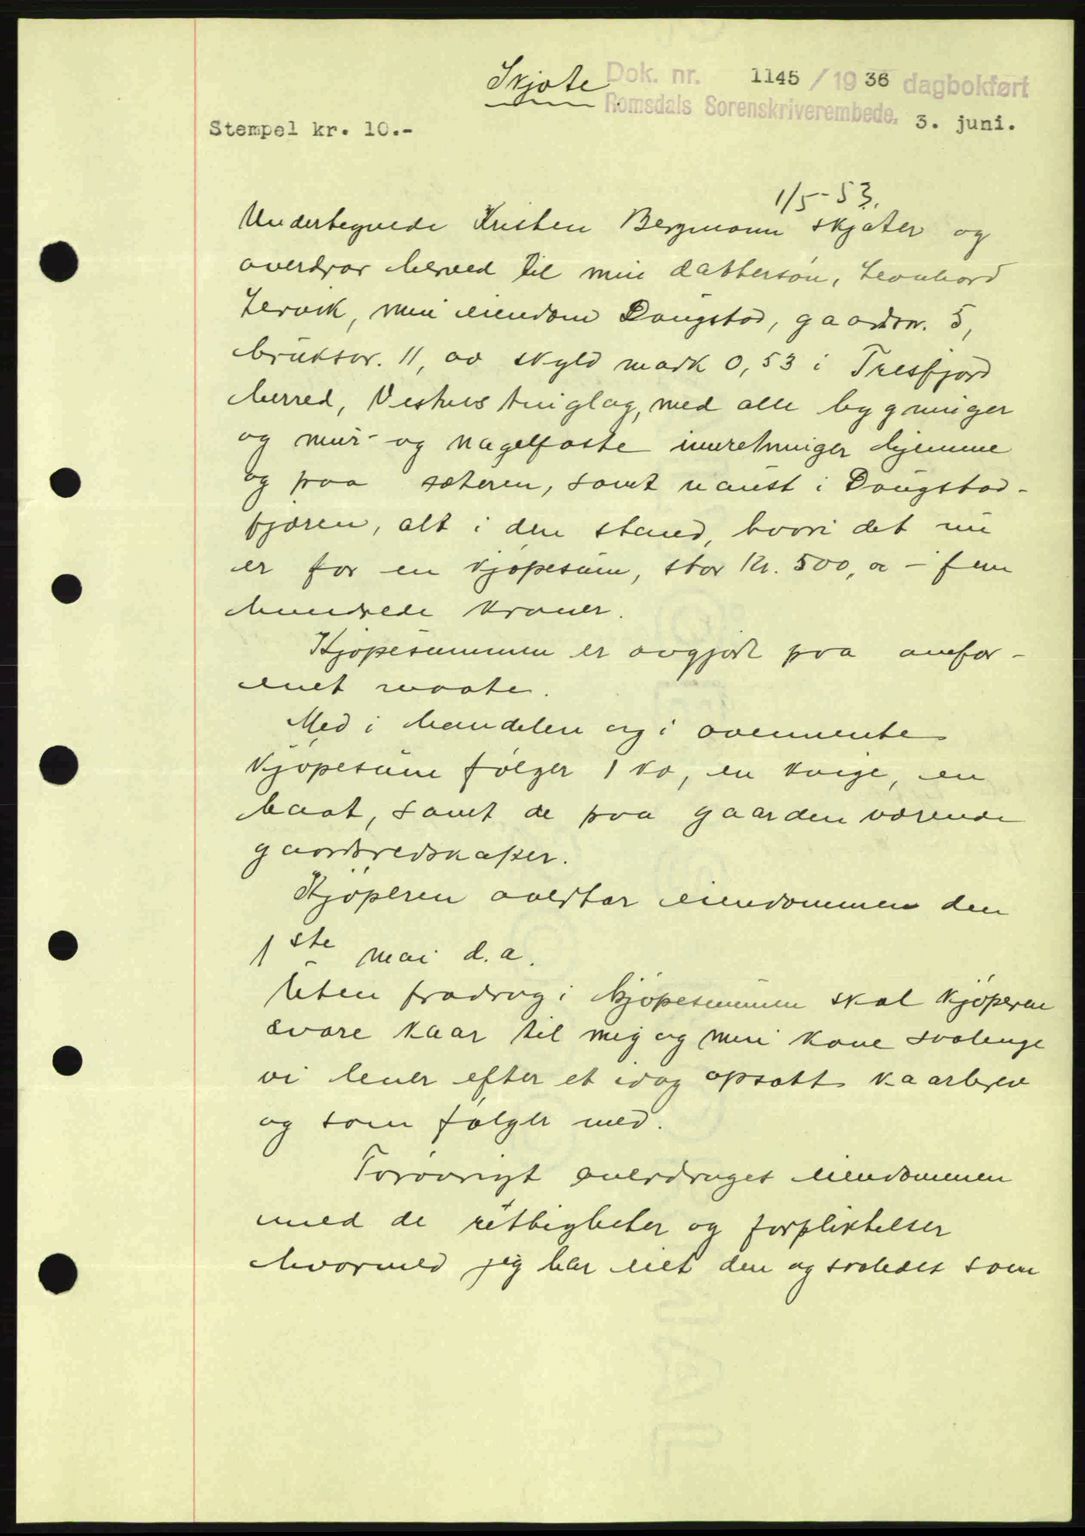 Skjøte
Dok. nr. 1145 / 19 36 dagbokført
Romsdals Sorenskriverembede.
3. juni.
Stempel kr. 10.-
1/5-53.
Undertegnede Kristen Bergmann skjøter og
overdrar herved til min dattersøn, Leonhard
Lervik, min eiendom Daugstad, gaardnr. 5,
bruksnr. 11, av skyld mark 0,53 i Tresfjord
herred, Vestnes tinglag, med alle bygninger
og mur- og nagelfaste innretninger hjemme
og paa sæteren, samt naust i Daugstad-
fjæren, alt i den stand, hvori det nu
er for en kjøpesum, stor Kr. 500,00 - fem
hundrede kroner.
Kjøpesummen er avgjort paa omfor-
enet maate.
Med i handelen og i ovennevnte
kjøpesum følger 1 ko, en kvige, en
baat, samt de paa gaarden værende
gaardsredskaper.
Kjøperen overtar eiendommen den
1ste mai d.a.
Uten fradrag i kjøpesummen skal kjøperen
svare kaar til mig og min kone saalenge
vi lever efter et idag opsatt kaarbrev
og som følger med.
Forøvrigt overdrages eiendommen
med de rettigheter og forpliktelser
hvormed jeg har eiet den og saaledes som